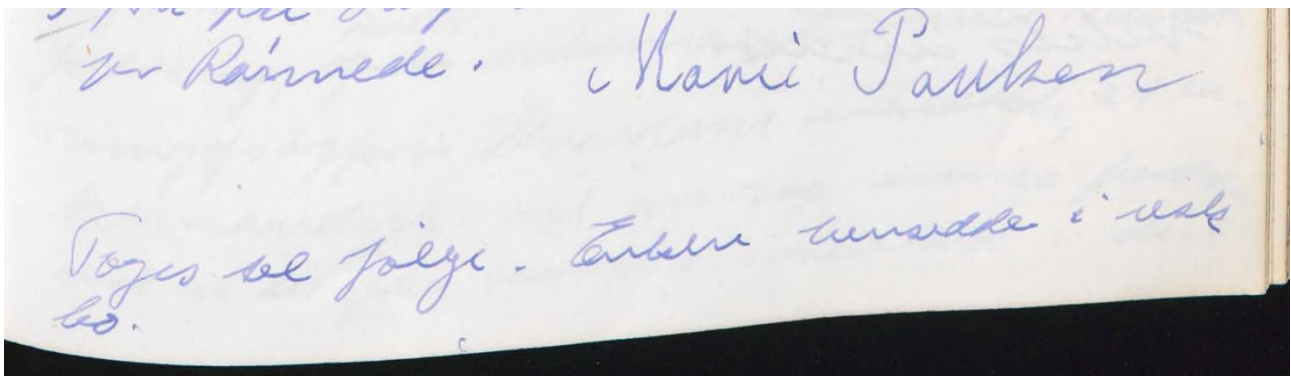 pr Rønnede. Marie Poulsen
Toges til følge. Enken hensidder i uskf
bo.